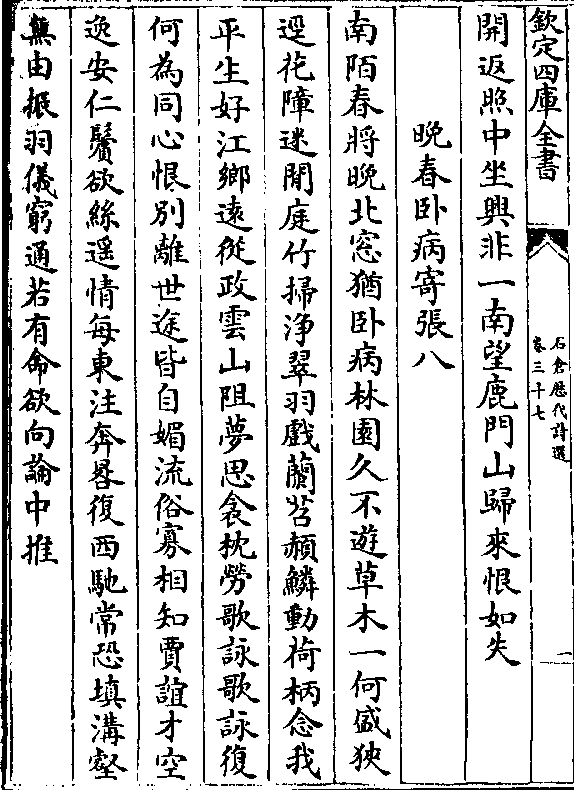 欽定四庫全書
石倉歴代詩選
卷三十七
一
開返照中坐興非一南望鹿門山歸來恨如失
晚春卧病寄張八
南陌春將晚北窓猶卧病林園久不遊草木一何盛狹
逕花障迷閒庭竹掃淨翠羽戲蘭苕頳鱗動荷柄念我
平生好江鄉遠從政雲山阻夢思衾枕勞歌詠歌詠復
何為同心恨別離世途皆自媚流俗寡相知賈誼才空
逸安仁鬢欲絲遥情每東注奔晷復西馳常恐填溝壑
無由振羽儀窮通若有命欲向論中推